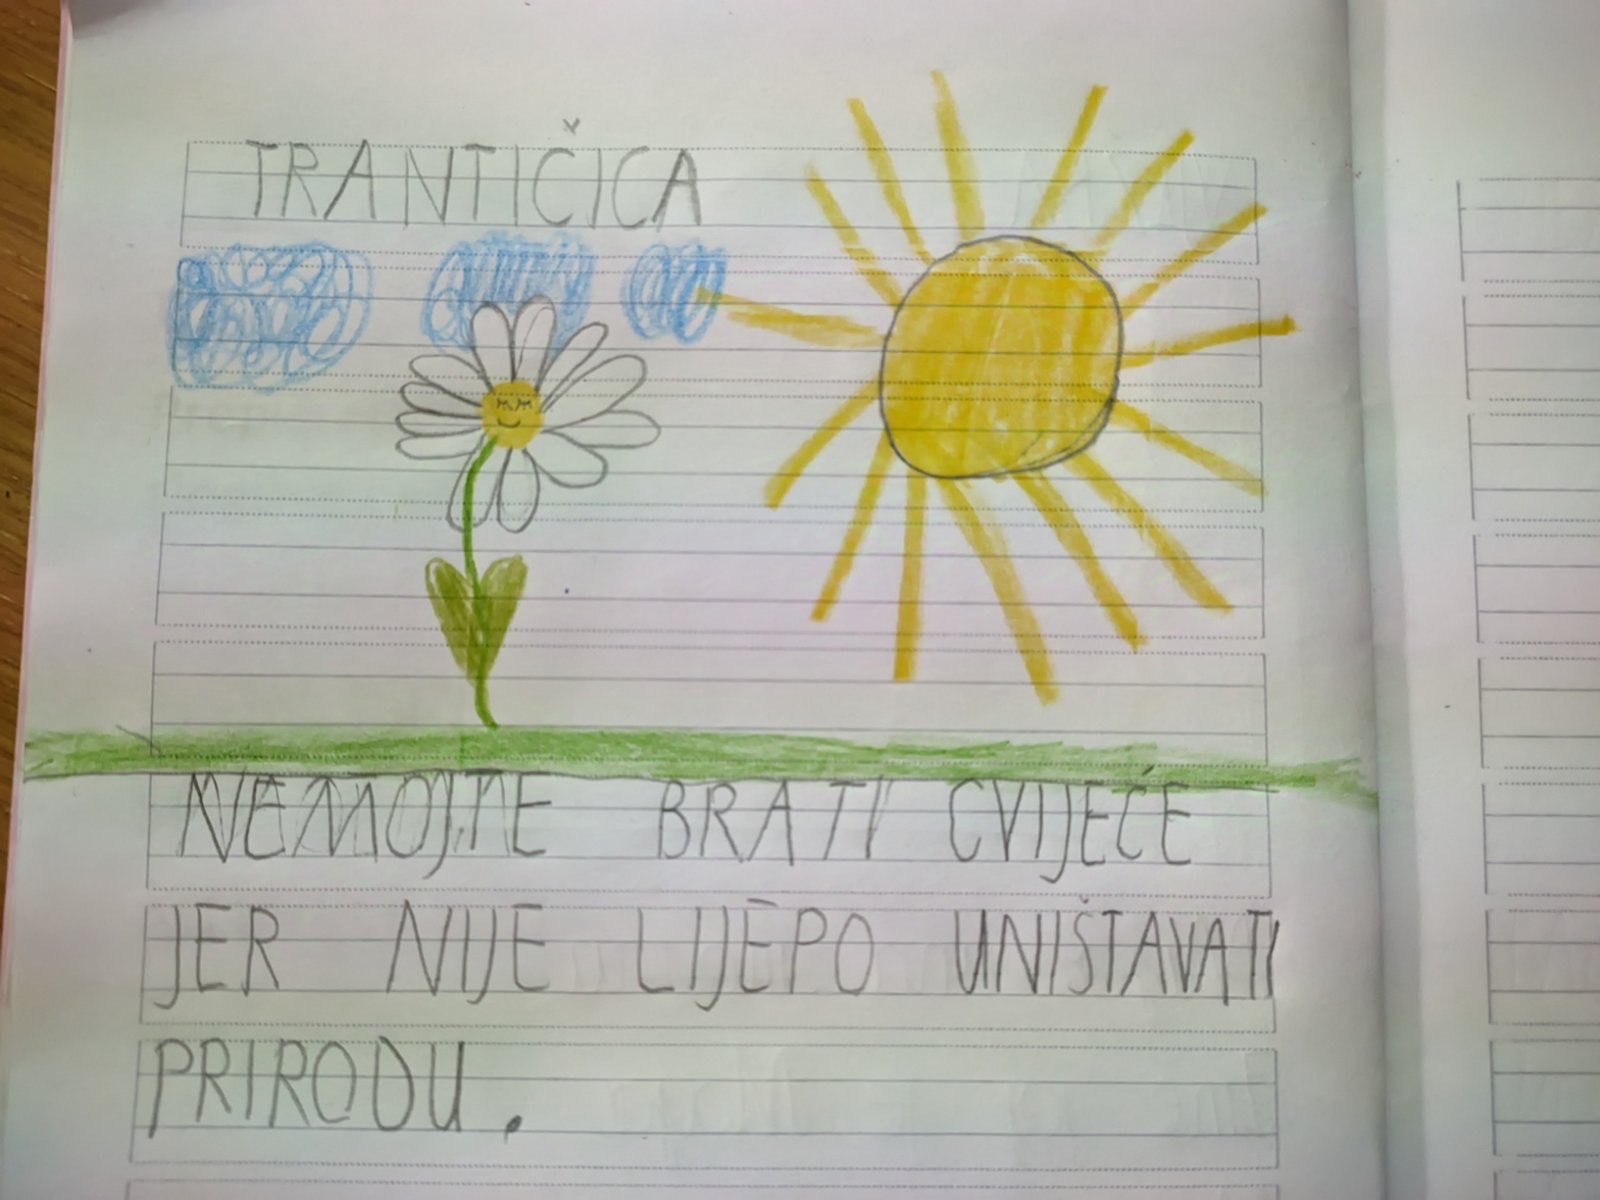 TRANTIČICA
NEMOJTE BRATI CVIJEĆE
JER NIJE LIJEPO UNIŠTAVATI
PRIRODU.